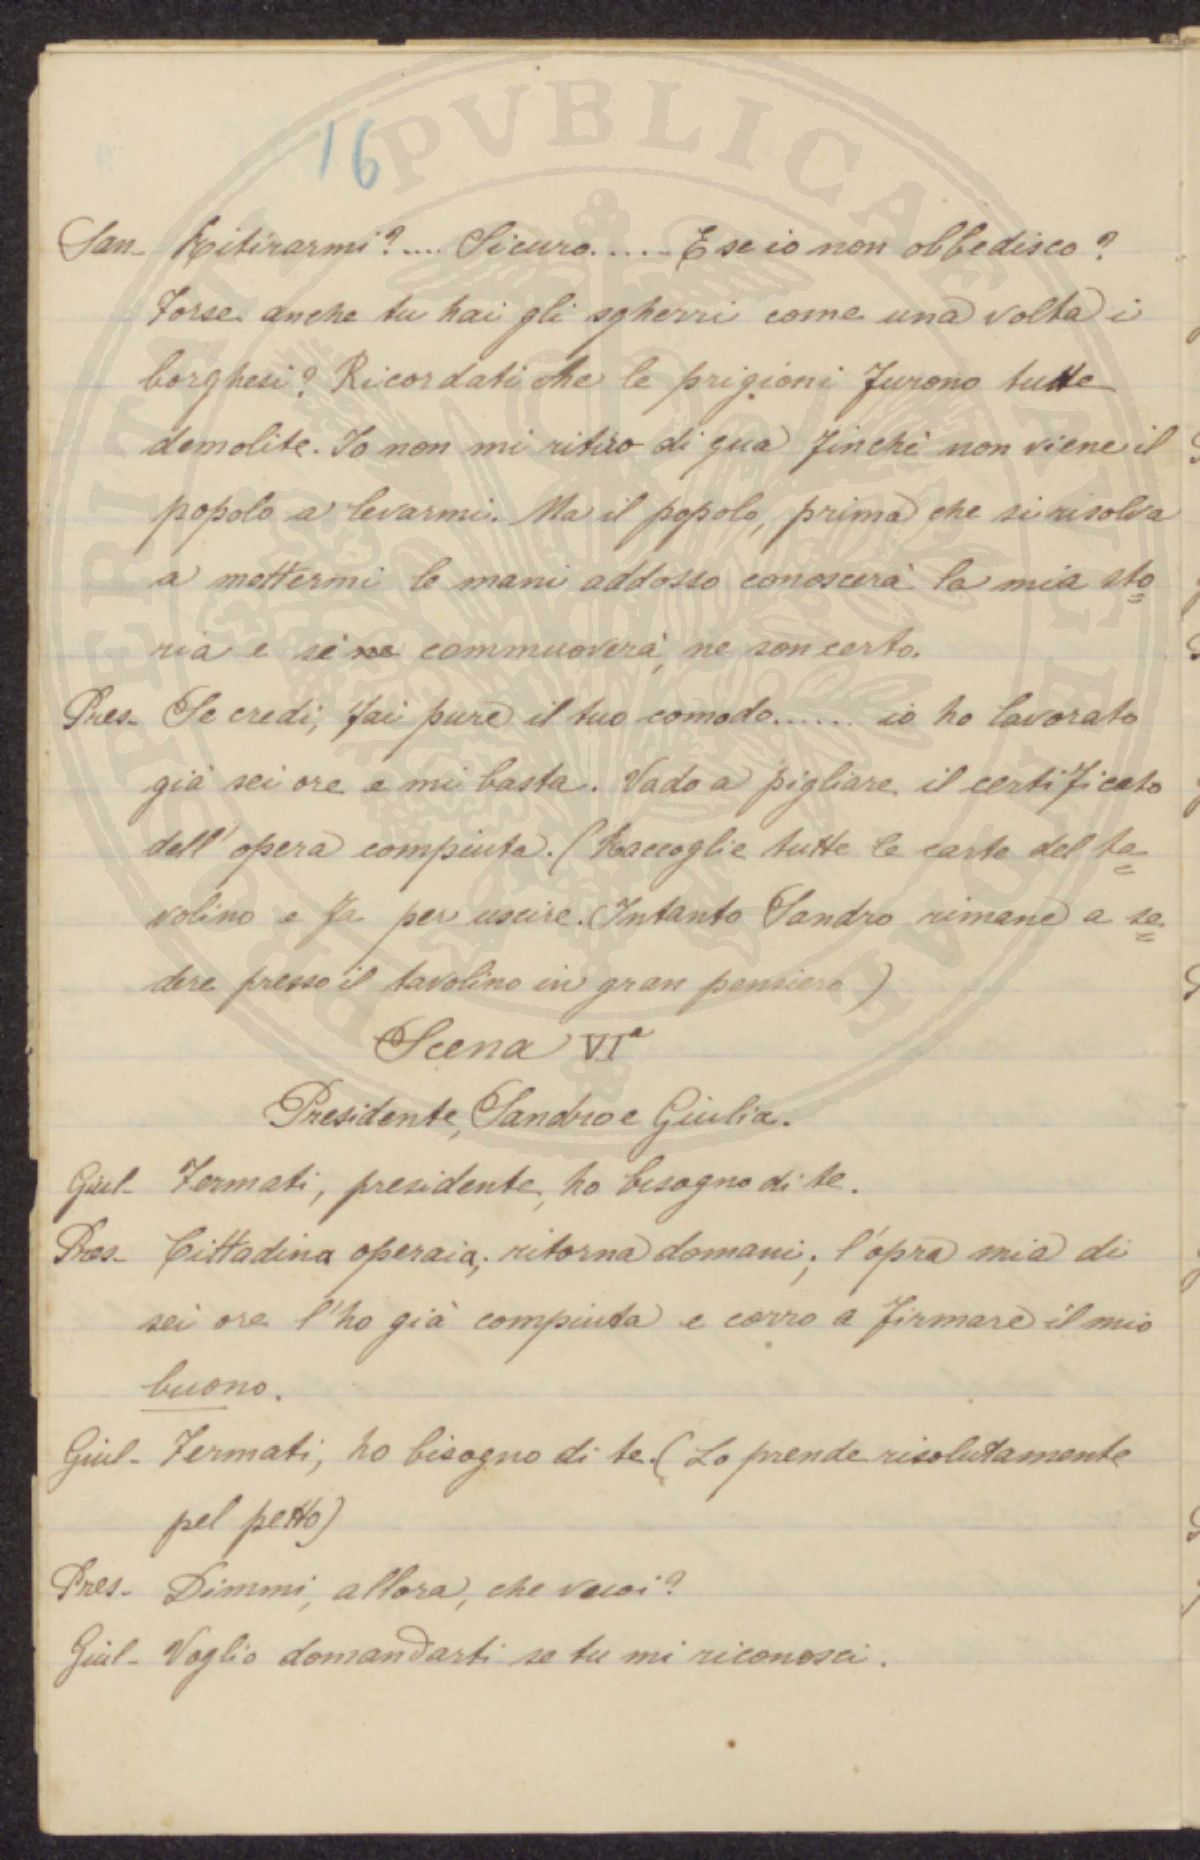 16
San- Ritirarmi?.... Sicuro..... E se io non obbedisco?
Forse anche tu hai gli sgherri come una volta i
borghesi? Ricordati che le prigioni furono tutte
demolite. Io non mi ritiro di qua finchè non viene il
popolo a levarmi. Ma il popolo, prima che si risolva
a mettermi le mani addosso conoscerà la mia sto=
ria e se ne commuoverà, ne son certo.
Pres- Se credi, fai pure il tuo comodo...... io ho lavorato
già sei ore e mi basta. Vado a pigliare il certificato
dell'opera compiuta. (Raccoglie tutte le carte del ta=
volino e fa per uscire. Intanto Sandro rimane a se=
dere presso il tavolino in gran pensiero)
Scena VIa
Presidente, Sandro e Giulia.
Giul- Fermati, presidente, ho bisogno di te.
Pres- Cittadina operaia, ritorna domani; l'opra mia di
sei ore l'ho già compiuta e corro a firmare il mio
buono.
Giul- Fermati, ho bisogno di te. (Lo prende risolutamente
pel petto)
Pres- Dimmi, allora, che vuoi?
Giul- Voglio domandarti se tu mi riconosci.